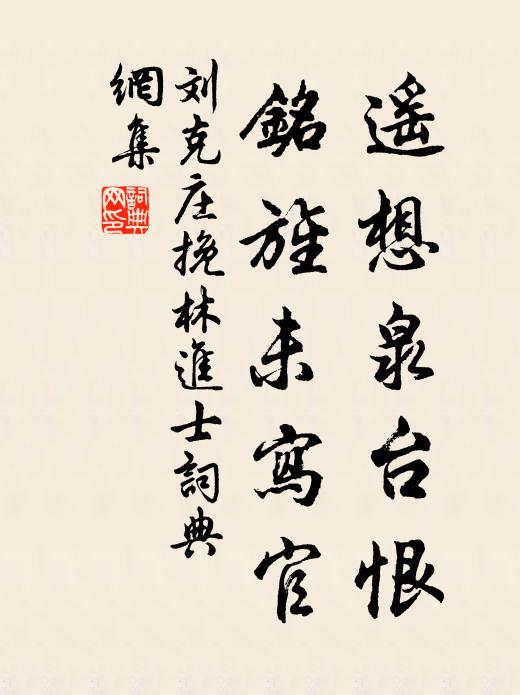 遥想泉台恨
銘旌未寫官
刘克庄挽林進士詞典
網集
詞典網印